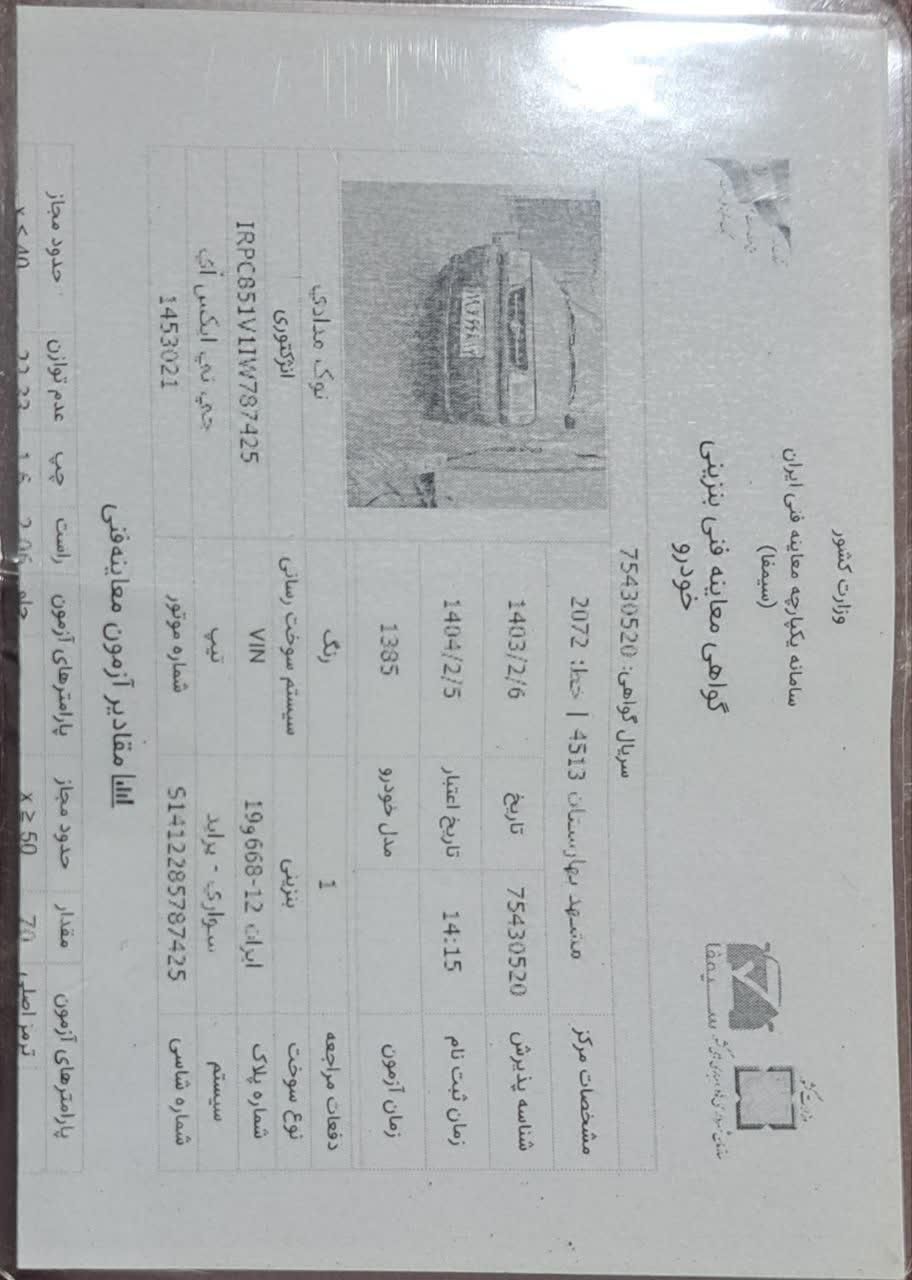 وزارت کشور
سامانه یکپارچه معاینه فنی ایران
(سیمفا)
گواهی معاینه فنی بنزینی
خودرو
سیمفا
سریال گواهی: 75430520
مشخصات مرکز مشهد بهارستان 4513 | خط: 2072
شناسه پذیرش 75430520 تاریخ 1403/2/6
زمان ثبت نام 14:15 تاریخ اعتبار 1404/2/5
زمان آزمون مدل خودرو 1385
دفعات مراجعه 1 رنگ نوک مدادي
نوع سوخت بنزینی سیستم سوخت رسانی انژکتوری
شماره پلاک ایران 12-668و19 VIN IRPC851V1IW787425
سیستم سواري - پراید تیپ جي تي ایکس آي
شماره شاسی S1412285787425 شماره موتور 1453021
مقادیر آزمون معاینه‌فنی
پارامترهای آزمون مقدار حدود مجاز پارامترهای آزمون راست چپ عدم توازن حدود مجاز
ترمز اصلی 70 x ≥ 50 جلو 2.06 1.6 22.33 x ≤ 40